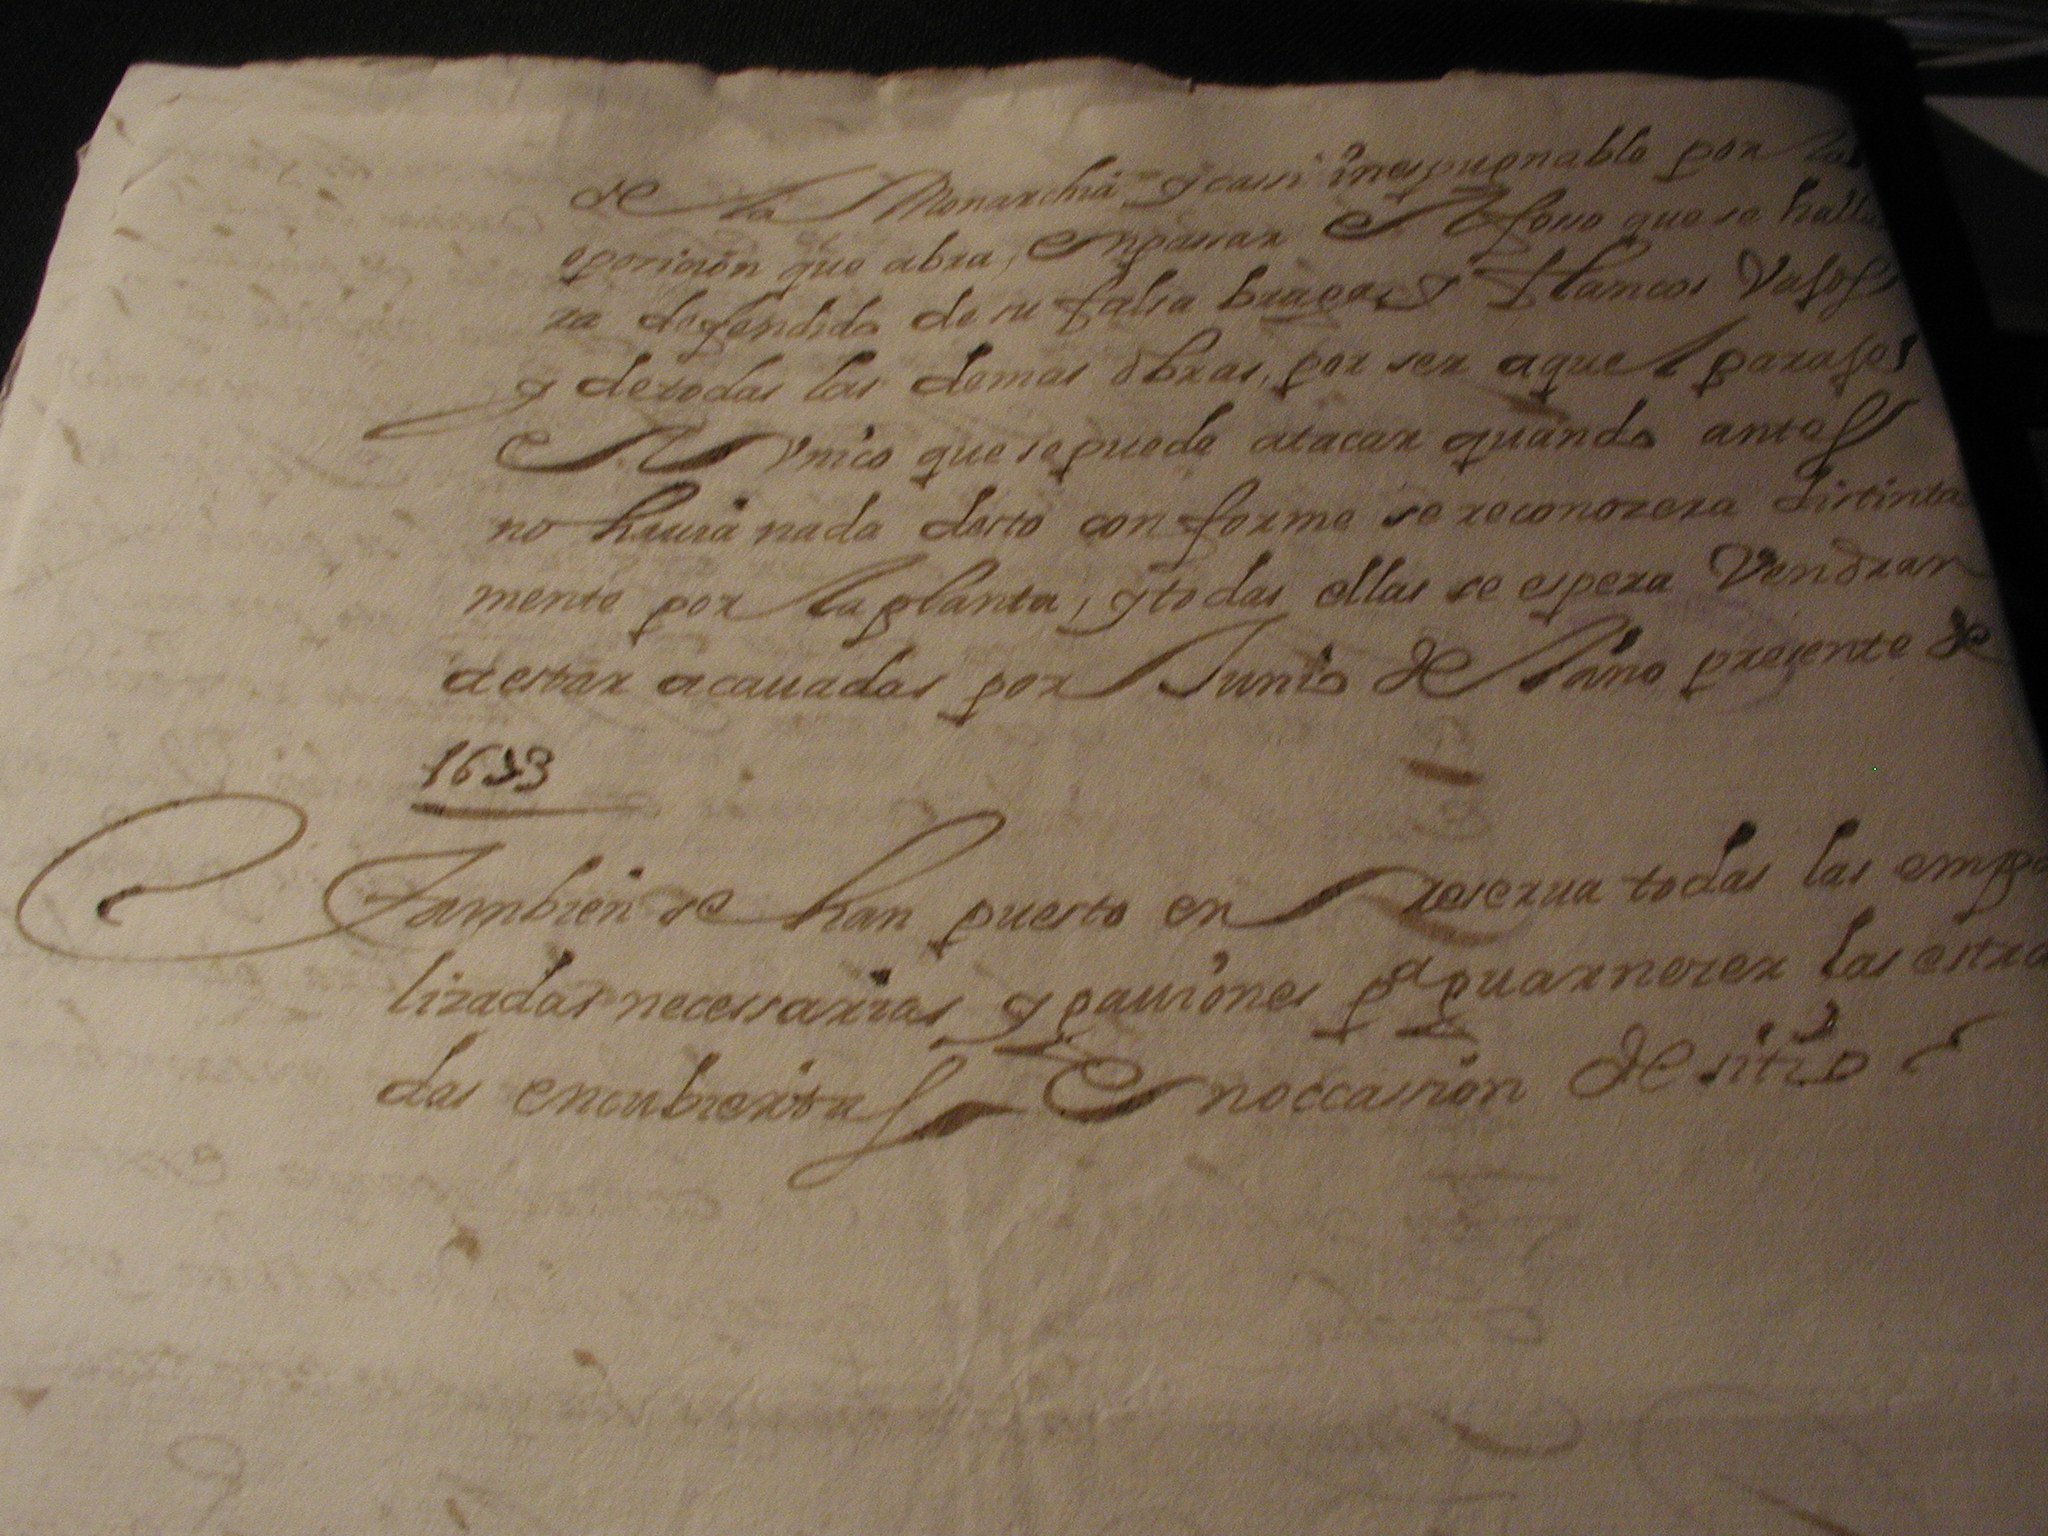 de la Monarchia, y cassi inespugnable por la
oposicion que abra, en passar el fosso que se halla
ra defendido de su falsa braga, y flancos vaxos
y de todas las demas obras, por ser aquel paraxe
el vnico que se puede atacar quando antes
no hauia nada desto conforme se reconozera distinta
mente por la planta, y todas ellas se espera vendran
a estar acauadas por Junio del año presente de
1693
Tambien se han puesto en reserua todas las empa
lizadas necessarias y pauiones pª guarnezer las estra
das encubiertas en occasion de sitio